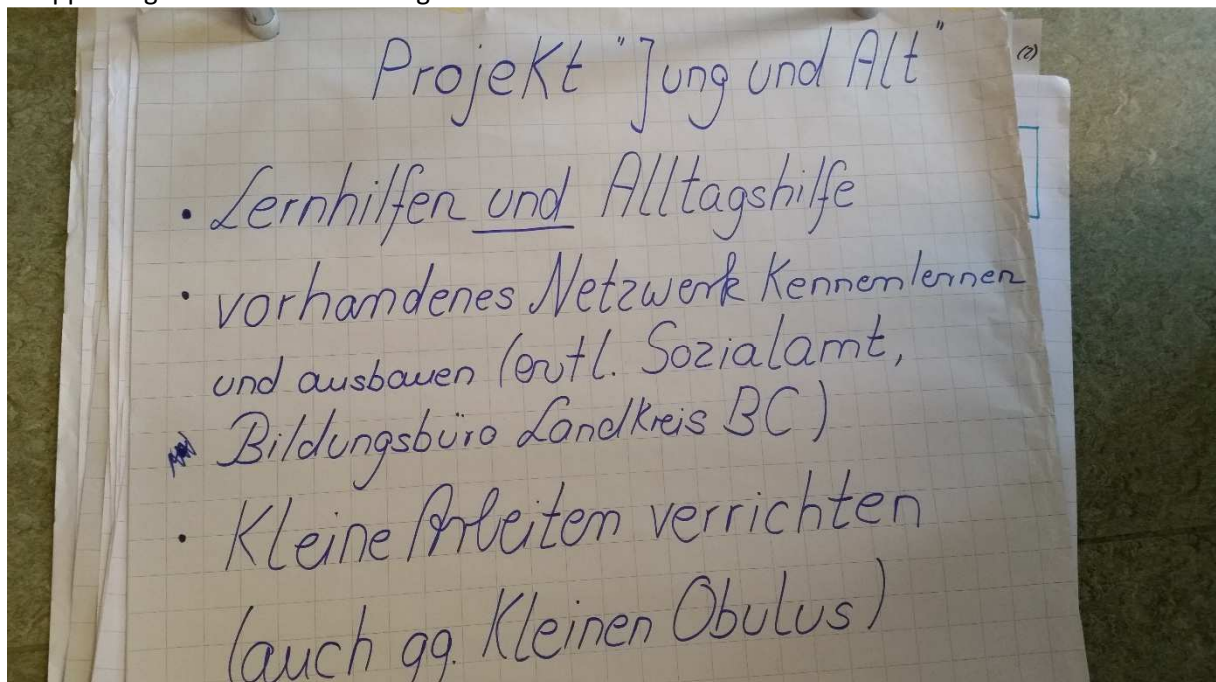 Projekt "Jung und Alt"
(2)
• Lernhilfen und Alltagshilfe
• vorhandenes Netzwerk Kennenlernen
und ausbauen (evtl. Sozialamt,
Bildungsbüro Landkreis BC)
• Kleine Arbeiten verrichten
(auch gg. Kleinen Obulus)